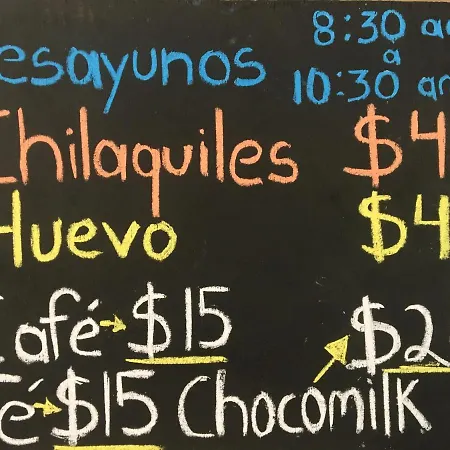 esayunos 8:30 a
a
10:30 a
Chilaquiles $4
Huevo $4
Café $15 $2
é $15 Chocomilk